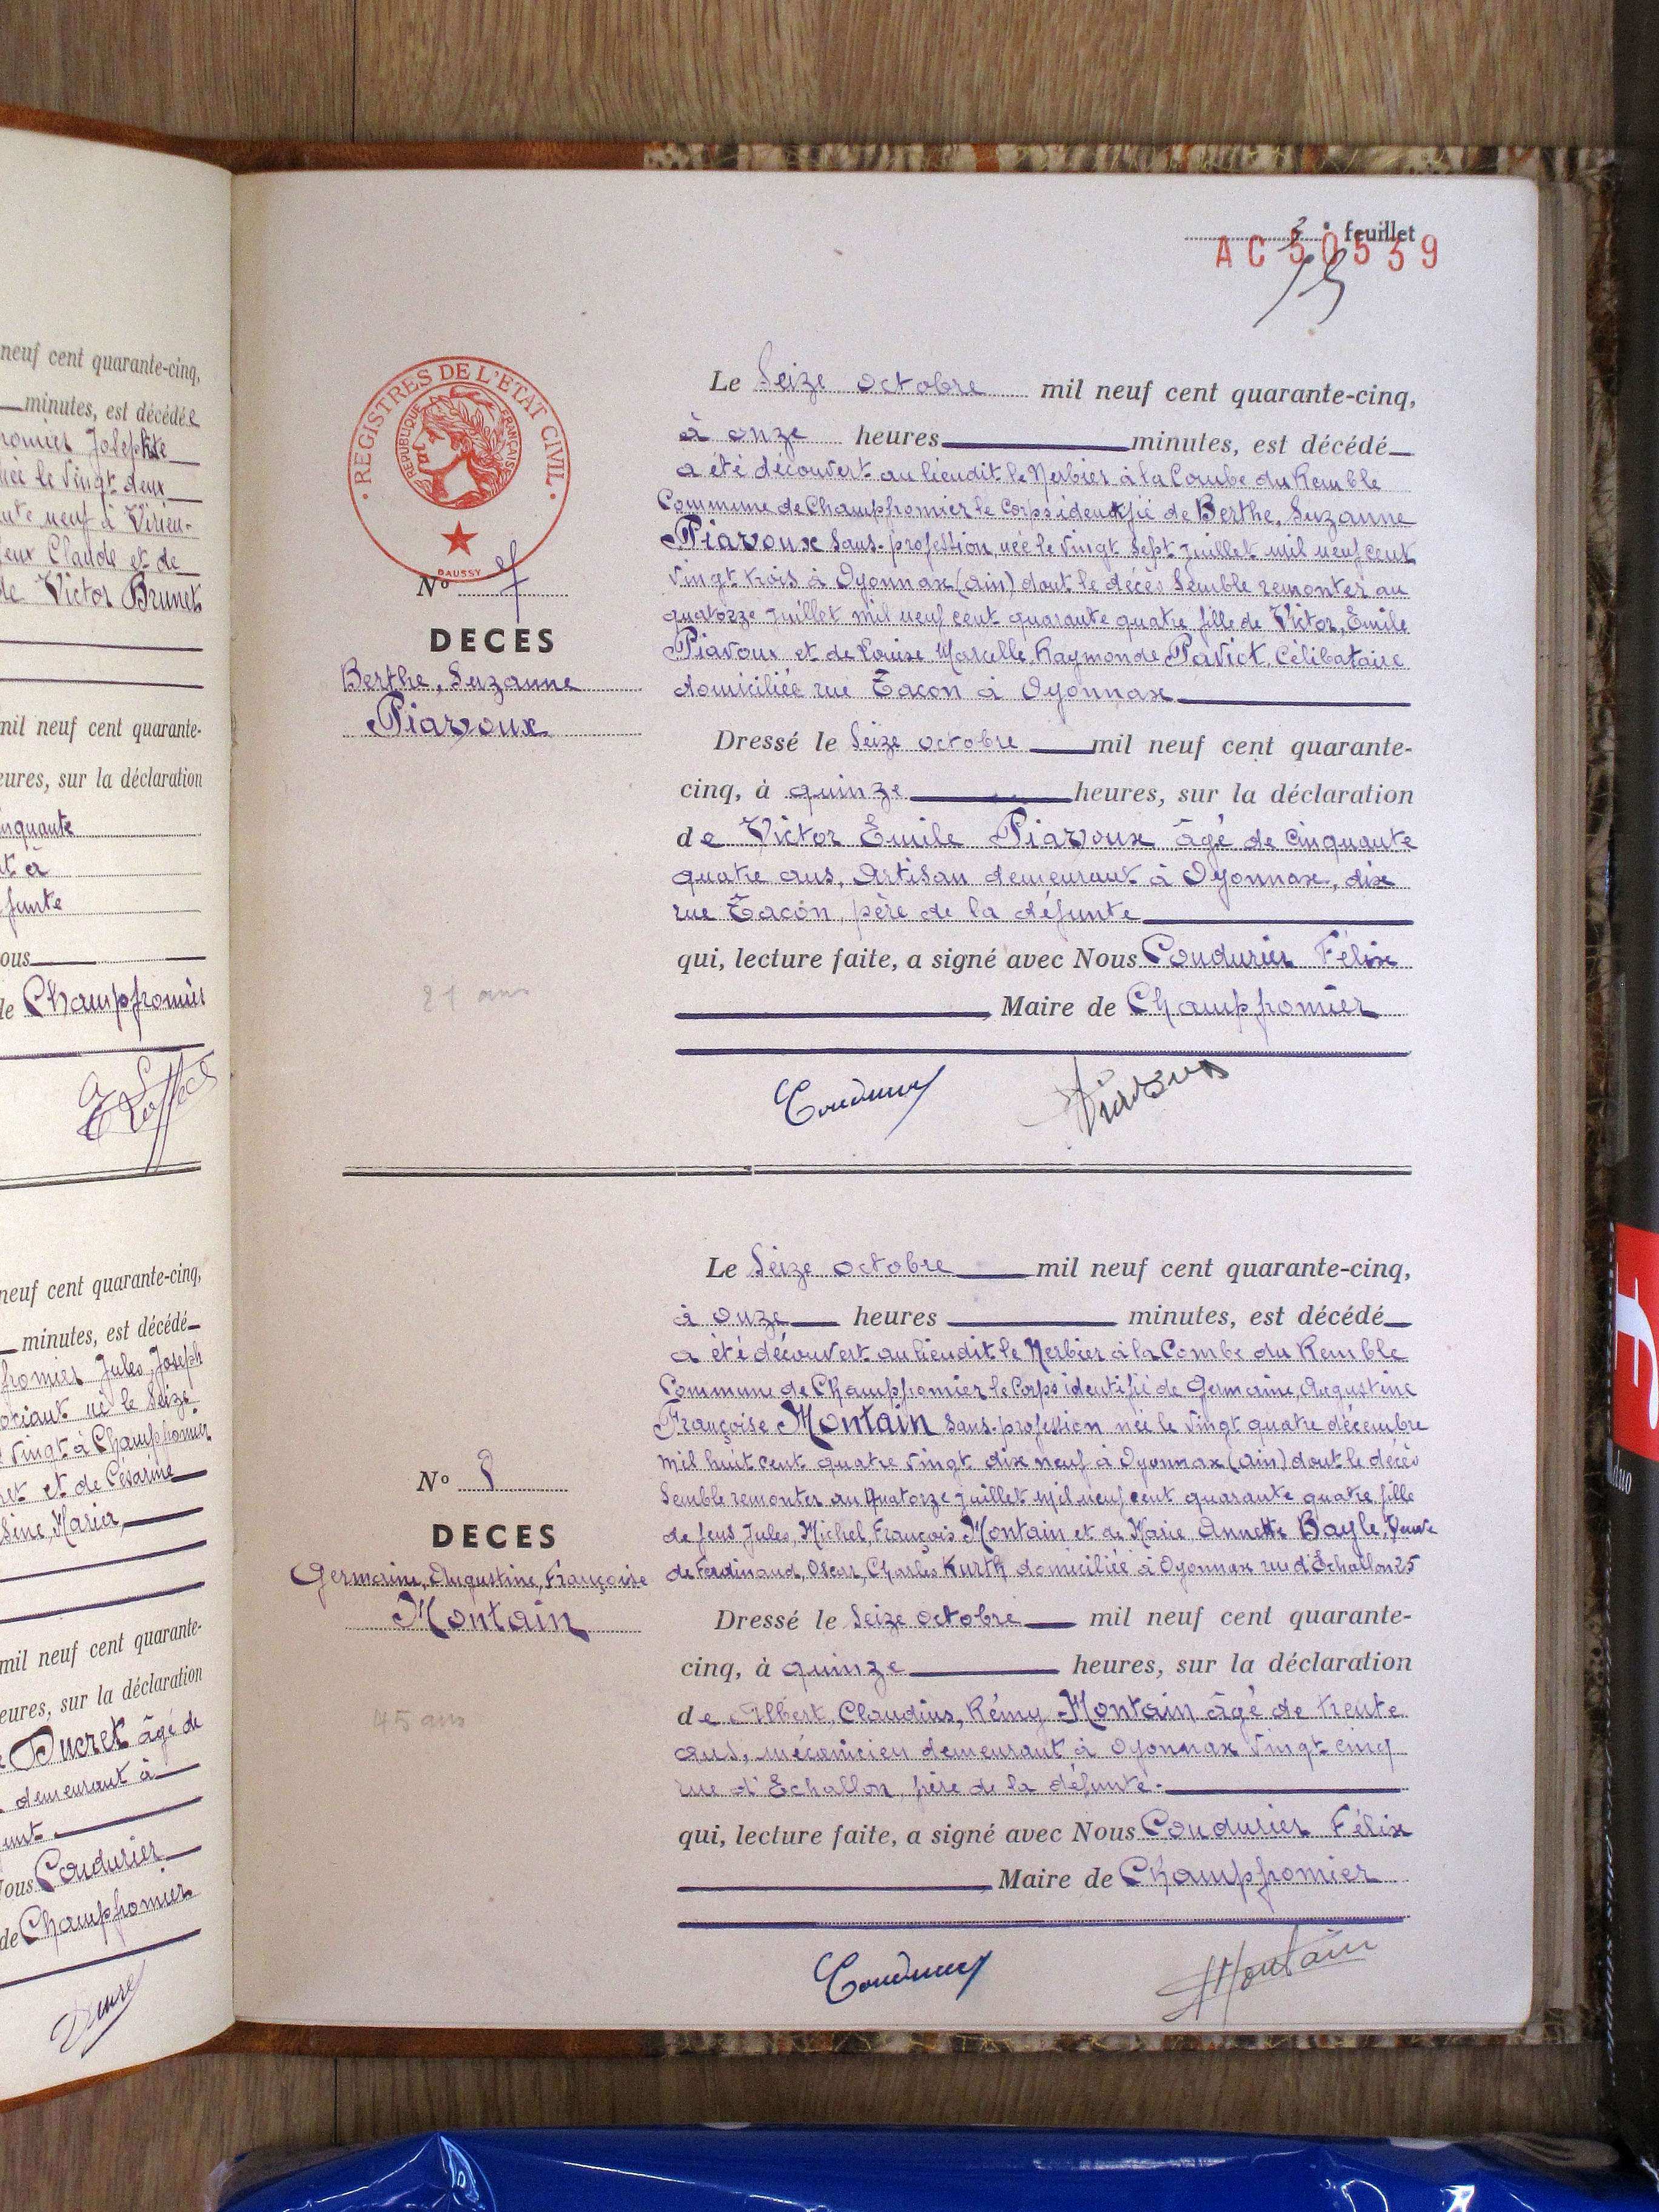 neuf cent quarante-cinq,
minutes, est décédée
née le vingt deux
neuf à Virieu-
Claude et de
de Victor Brunet
mil neuf cent quarante-
heures, sur la déclaration
cinquante
à
Champfromier
neuf cent quarante-cinq,
minutes, est décédé
Jules, Joseph
né le Seize
vingt à Champfromier
et de Césarine
mil neuf cent quarante-
heures, sur la déclaration
Ducret âgé de
demeurant à
Nous Coudurier
de Champfromier
3e feuillet
AC 50539
REGISTRES DE L'ETAT CIVIL
REPUBLIQUE FRANÇAISE
DAUSSY
N° 7
DECES
Berthe, Suzanne
Piavoux
21 ans
Le Seize octobre mil neuf cent quarante-cinq,
à onze heures minutes, est décédé
a été découvert au lieudit le Nerbier à la Combe du Remble
Commune de Champfromier le Corps identifié de Berthe, Suzanne
Piavoux Sans-profession, née le vingt Sept juillet mil neuf cent
vingt trois à Oyonnax (Ain) dont le décès Semble remonter au
quatorze juillet mil neuf cent quarante quatre fille de Victor, Emile
Piavoux et de Louise Marcelle Raymonde Pavict, Célibataire
domiciliée rue Tacon à Oyonnax
Dressé le Seize octobre mil neuf cent quarante-
cinq, à quinze heures, sur la déclaration
de Victor Emile Piavoux âgé de Cinquante
quatre ans, Artisan demeurant à Oyonnax, dix
rue Tacon, père de la défunte
qui, lecture faite, a signé avec Nous Coudurier Félix
Maire de Champfromier
Coudurier Piavoux
N° 8
DECES
Germaine, Augustine, Françoise
Montain
45 ans
Le Seize octobre mil neuf cent quarante-cinq,
à onze heures minutes, est décédé
a été découvert au lieudit le Nerbier à la Combe du Remble
Commune de Champfromier le Corps identifié de Germaine, Augustine
Françoise Montain Sans-profession née le vingt quatre décembre
mil huit cent quatre vingt dix neuf à Oyonnax (Ain) dont le décès
Semble remonter au Quatorze juillet mil neuf cent quarante quatre, fille
de feus Jules, Michel, François Montain et de Marie, Annette Bayle, Veuve
de Ferdinand, Oscar, Charles Kurth domiciliée à Oyonnax rue d'Échallon 25
Dressé le Seize octobre mil neuf cent quarante-
cinq, à quinze heures, sur la déclaration
de Albert, Claudius, Rémy Montain âgé de trente
ans, mécanicien demeurant à Oyonnax vingt cinq
rue d'Echallon, père de la défunte.
qui, lecture faite, a signé avec Nous Coudurier Félix
Maire de Champfromier
Coudurier Montain
duo